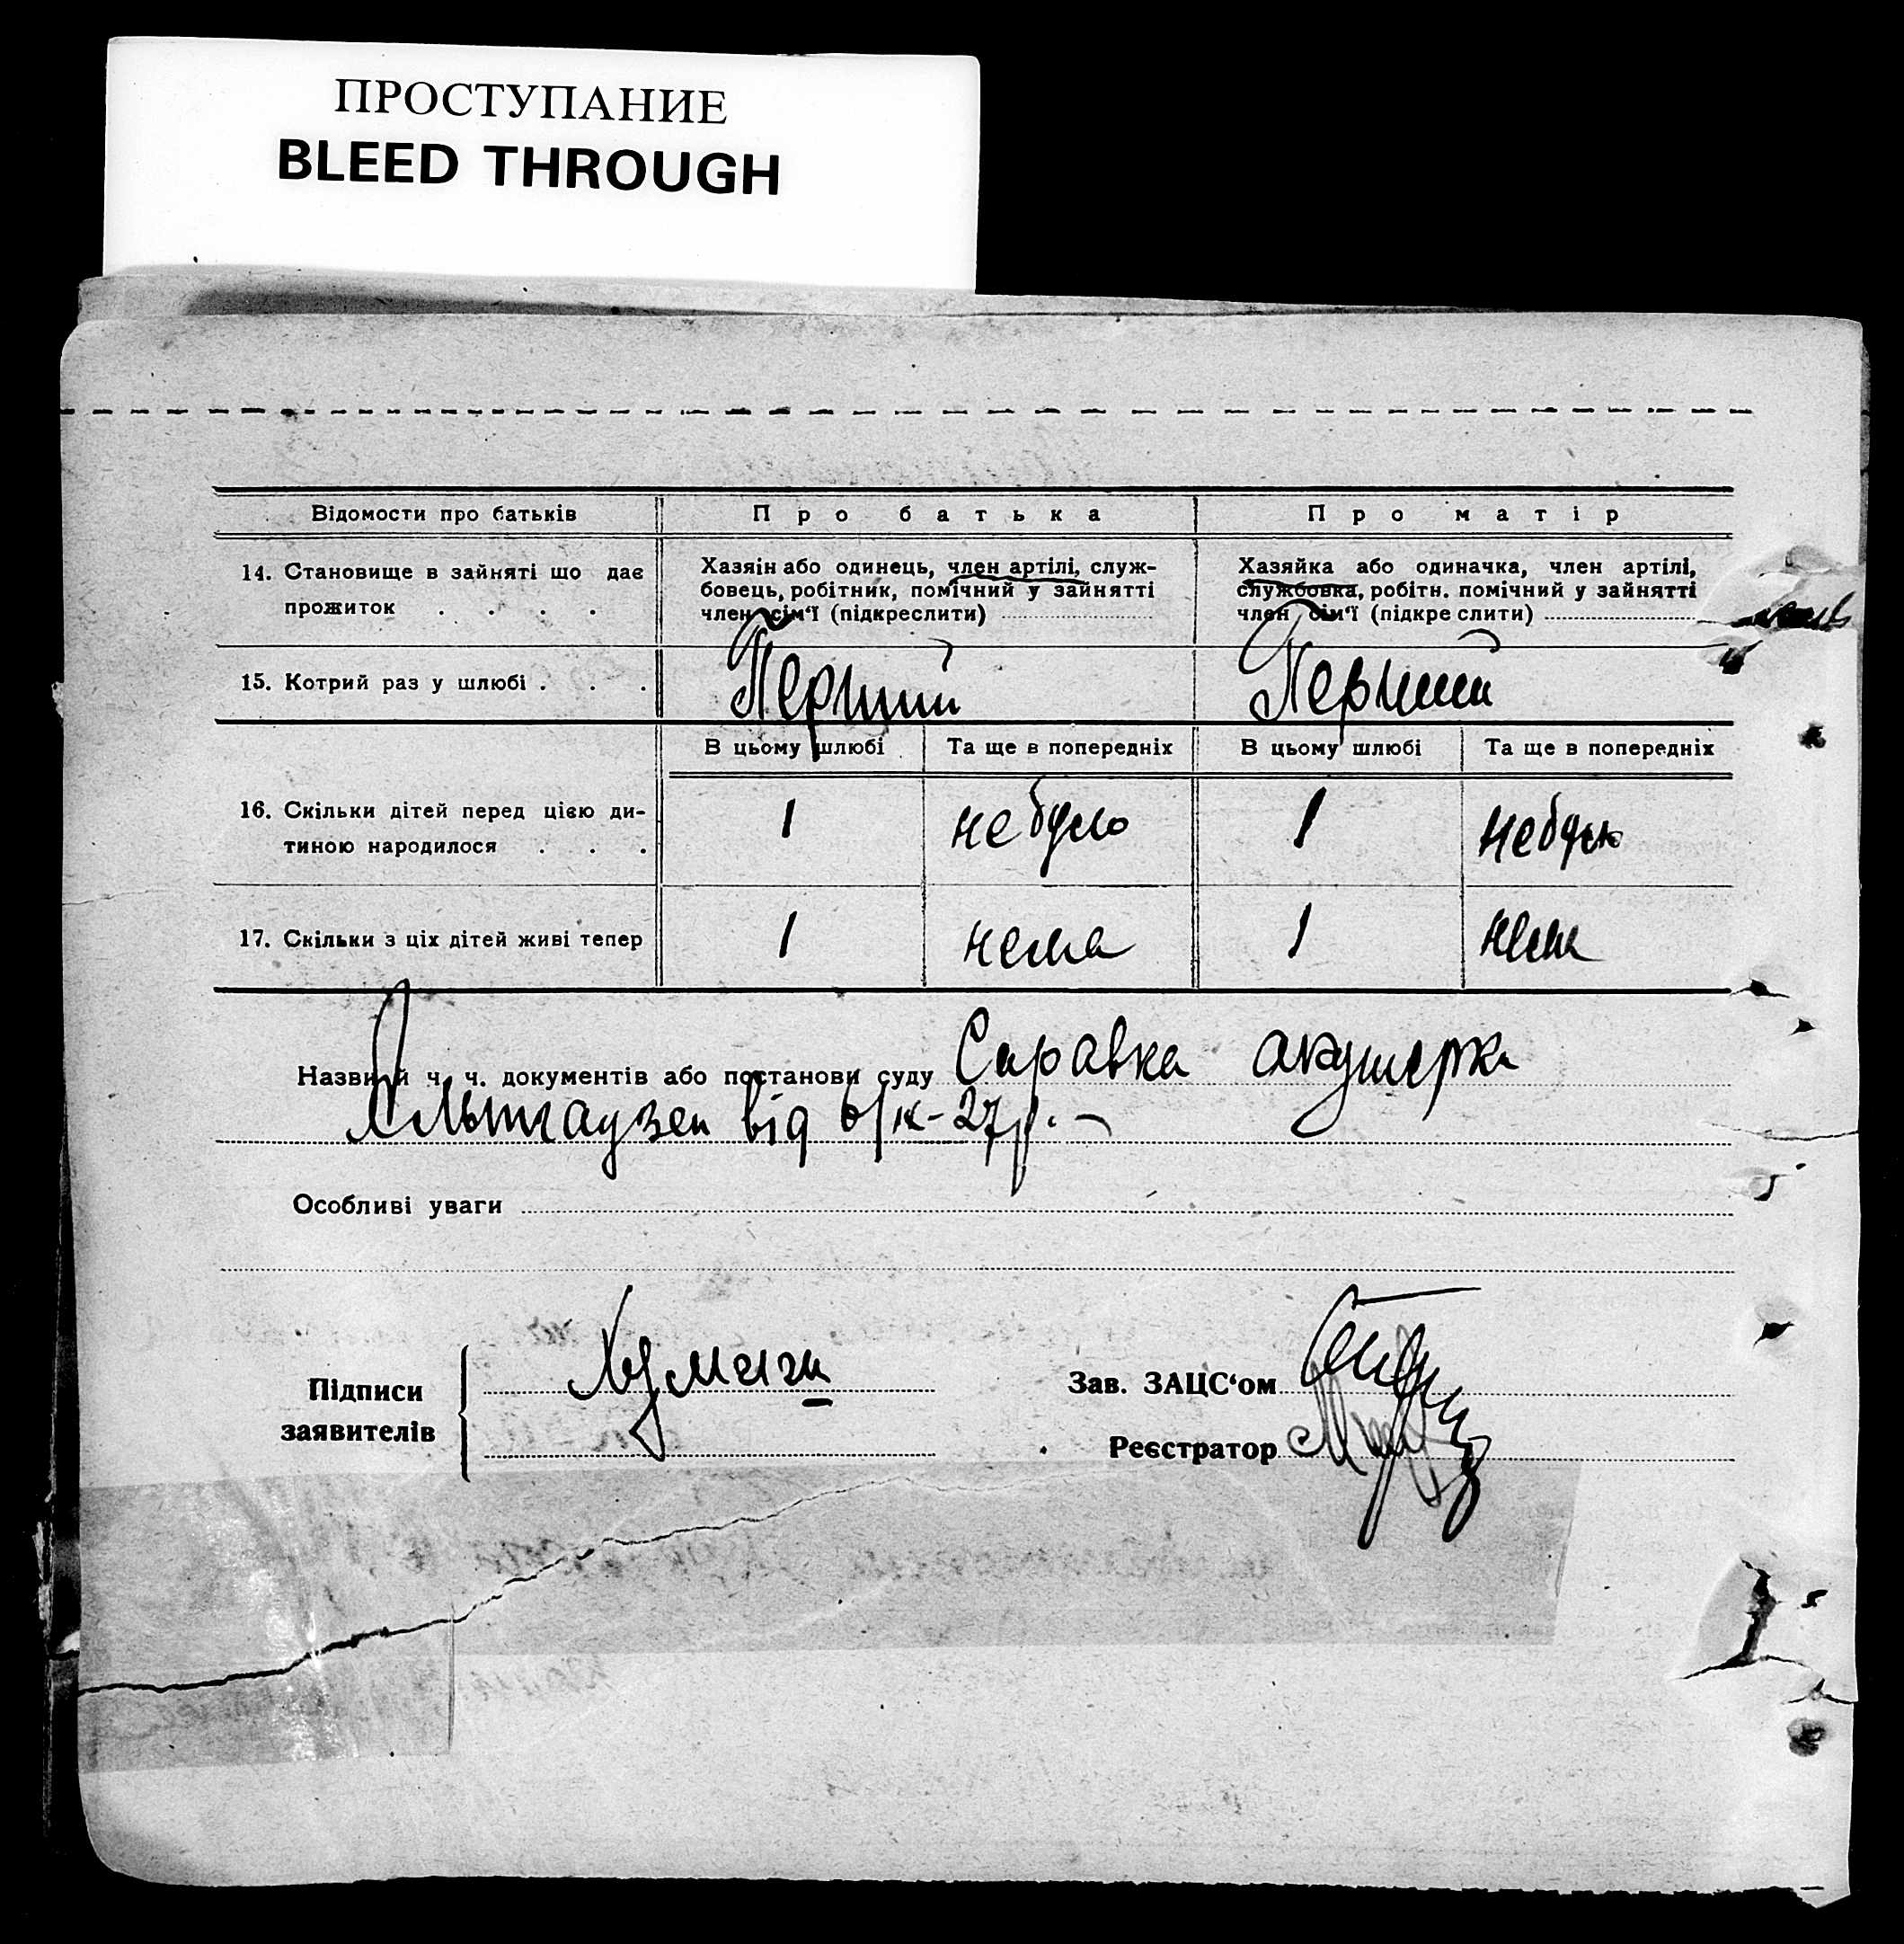 ПРОСТУПАНИЕ
BLEED THROUGH
Відомости про батьків
Про батька
Про матір
14. Становище в зайняті що дає
прожиток . . . .
Хазяін або одинець, член артілі, служ-
бовець, робітник, помічний у зайнятті
член сім‘ї (підкреслити)
Хазяйка або одиначка, член артілі,
службовка, робітн. помічний у зайнятті
член сім‘ї (підкреслити)
15. Котрий раз у шлюбі . . .
Перший
Перший
В цьому шлюбі
Та ще в попередніх
В цьому шлюбі
Та ще в попередніх
16. Скільки дітей перед цією ди-
тиною народилося . . .
1
небуло
1
небуло
17. Скільки з ціх дітей живі тепер
1
нема
1
нема
Назви й ч. ч. документів або постанови суду Справка акушерки
від 27р. –
Особливі уваги
Підписи
заявителів
Зав. ЗАЦС‘ом
Реєстратор